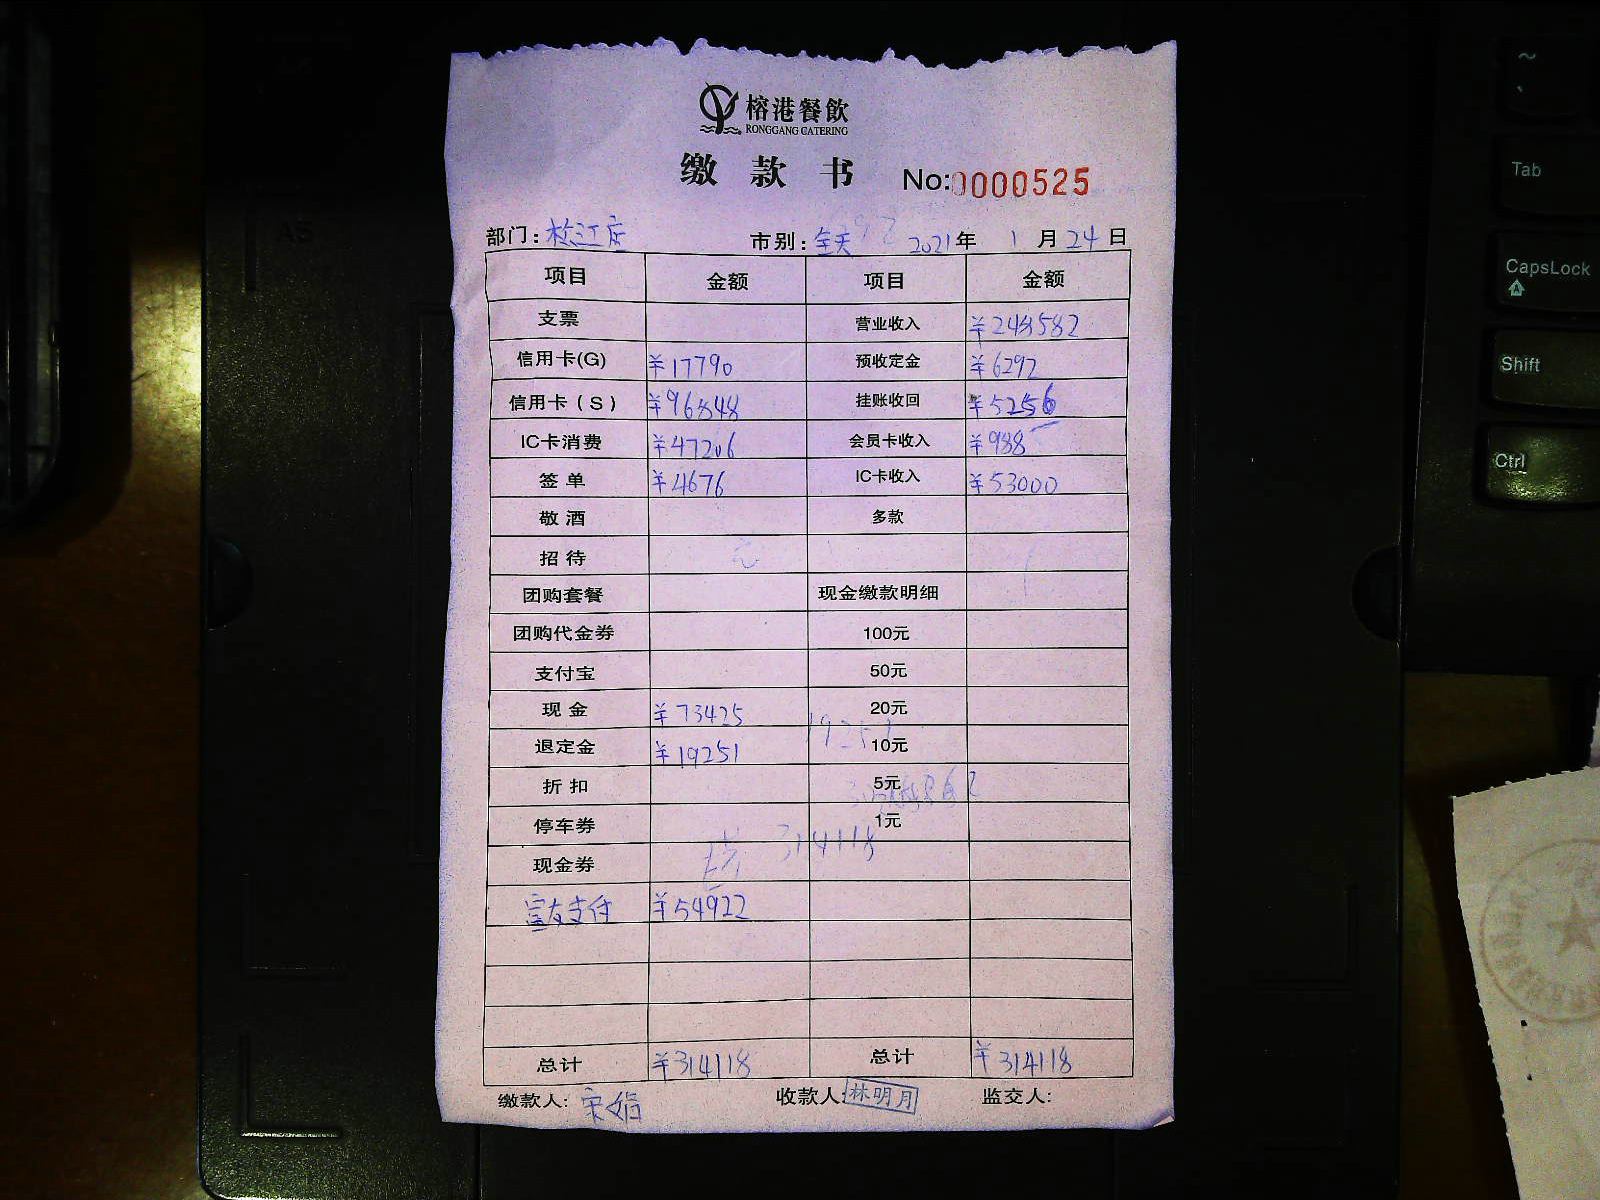 榕港餐飲
RONGGANG CATERING
缴款书 No:0000525
部门:松江店 市别:全天 2021年 1月24日
项目 金额 项目 金额
支票 营业收入 ¥248582
信用卡(G) ¥17790 预收定金 ¥6292
信用卡(S) ¥96848 挂账收回 ¥5256
IC卡消费 ¥47206 会员卡收入 ¥988
签单 ¥4676 IC卡收入 ¥53000
敬酒 多款
招待
团购套餐 现金缴款明细
团购代金券 100元
支付宝 50元
现金 ¥73425 20元
退定金 ¥19251 10元
折扣 5元
停车券 1元
现金券 314118
富友支付 ¥54922
总计 ¥314118 总计 ¥314118
缴款人:宋娟 收款人:林明月 监交人:
~
Tab
CapsLock
Shift
Ctrl